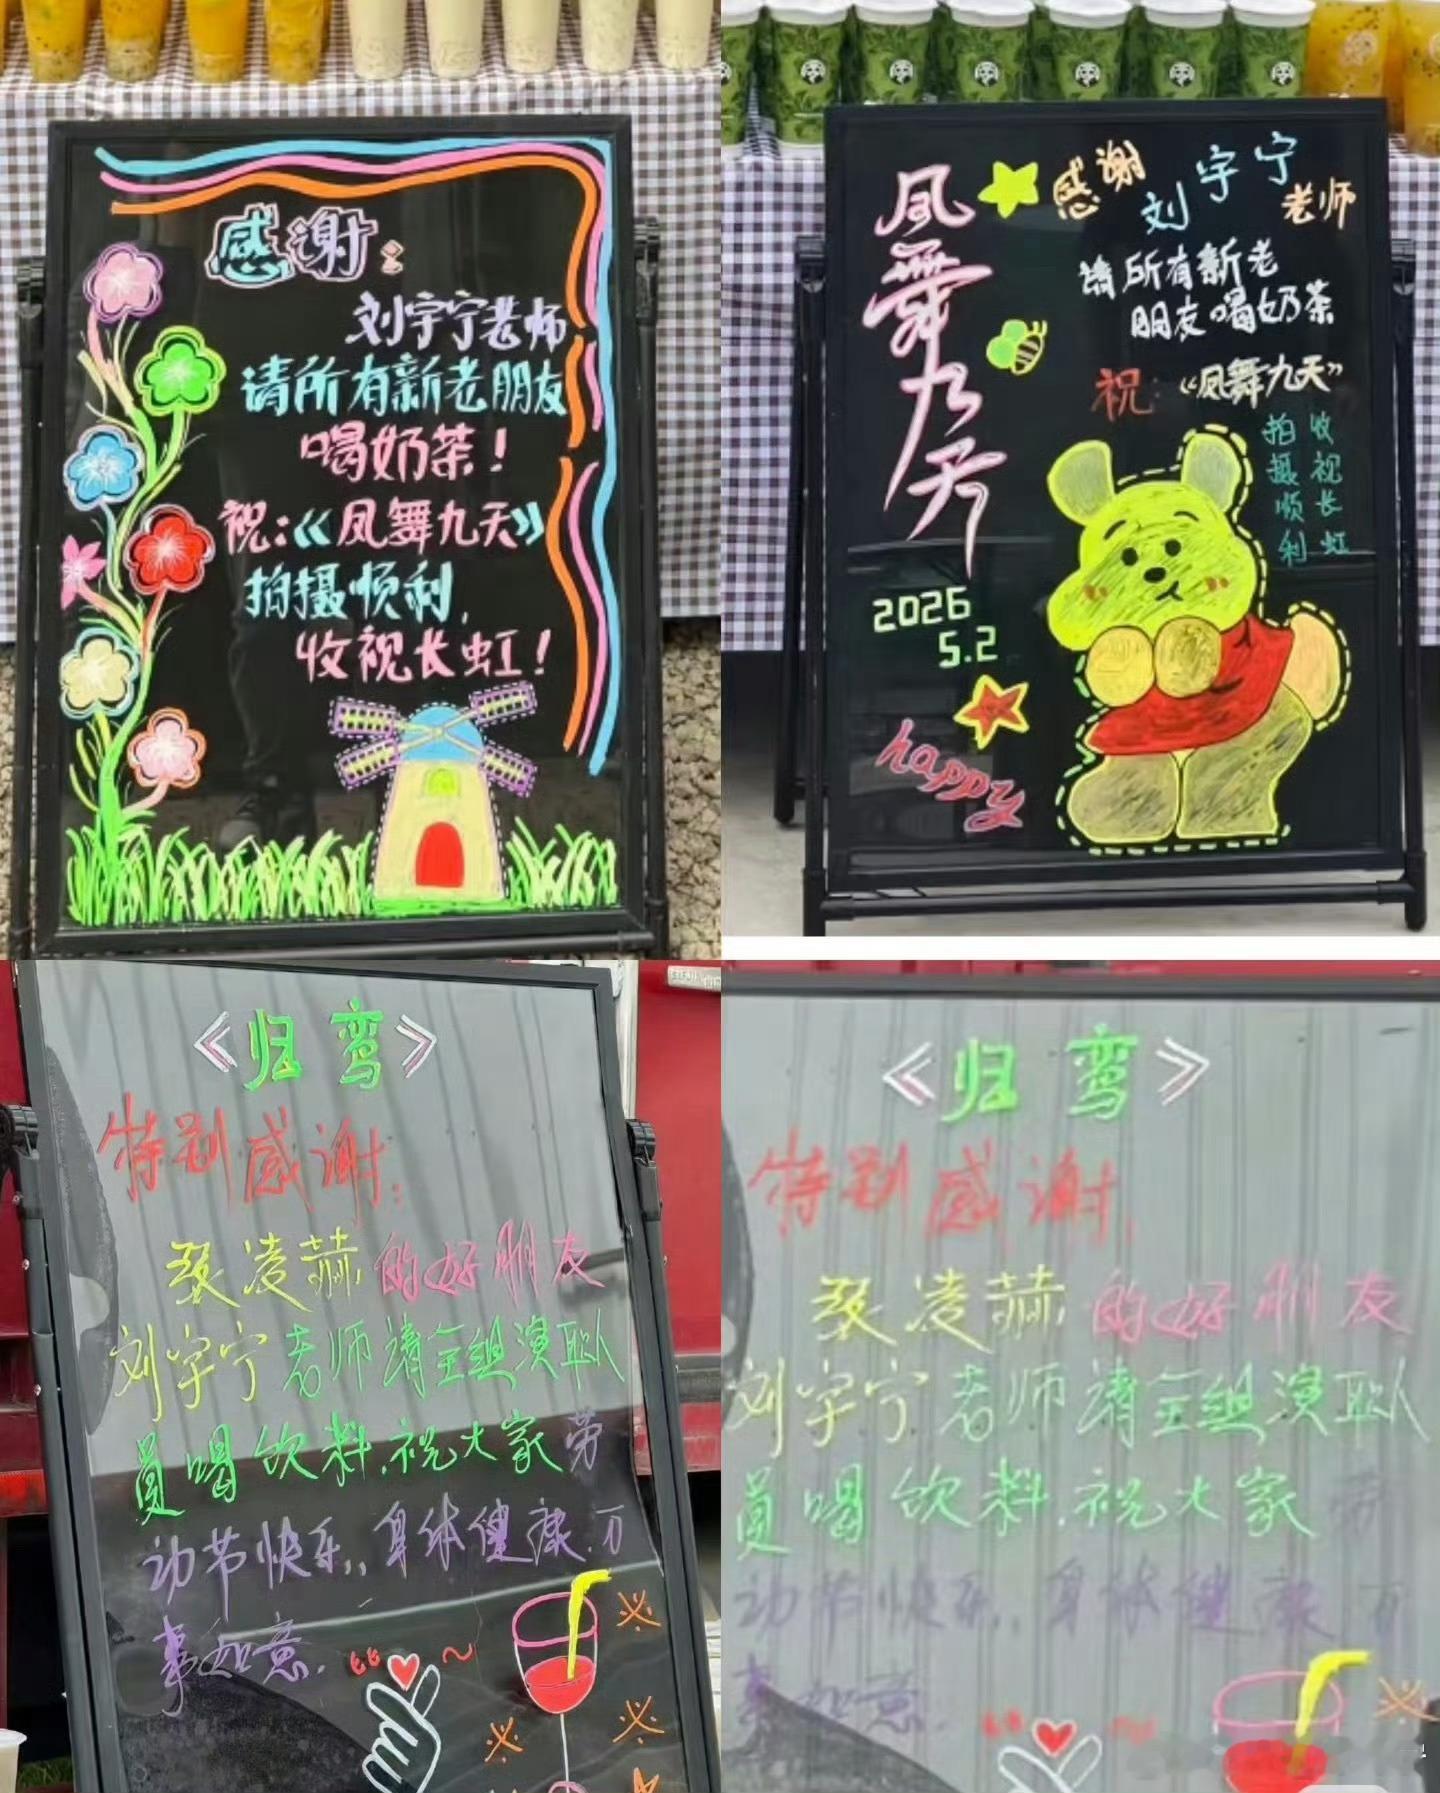 感谢：
刘宇宁老师
请所有新老朋友
喝奶茶！
祝：《凤舞九天》
拍摄顺利，
收视长虹！
凤舞九天
感谢
刘宇宁
老师
请所有新老
朋友喝奶茶
祝：《凤舞九天》
拍摄顺利
收视长虹
2026
5.2
happy
《归鸾》
特别感谢：
张凌赫的好朋友
刘宇宁老师请全组演职人
员喝饮料.祝大家劳
动节快乐,,身体健康.万
事如意.
《归鸾》
特别感谢：
张凌赫的好朋友
刘宇宁老师请全组演职人
员喝饮料.祝大家劳
动节快乐,,身体健康.万
事如意